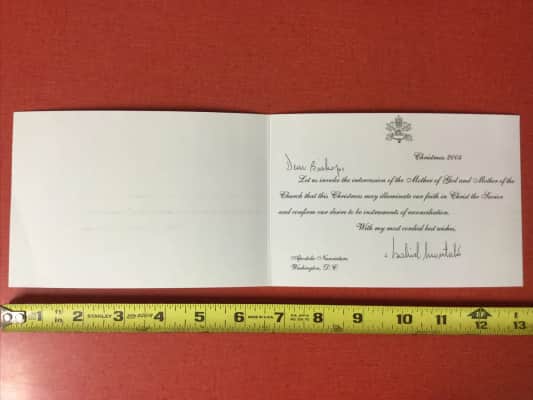 Christmas 2005
Dear Bishop,
Let us invoke the intercession of the Mother of God and Mother of the
Church that this Christmas may illuminate our faith in Christ the Savior
and confirm our desire to be instruments of reconciliation.
With my most cordial best wishes,
Apostolic Nunciature
Washington, D.C.
1 ft in 2 STANLEY 3 4 5 6 7 8 9 10 11 12 13